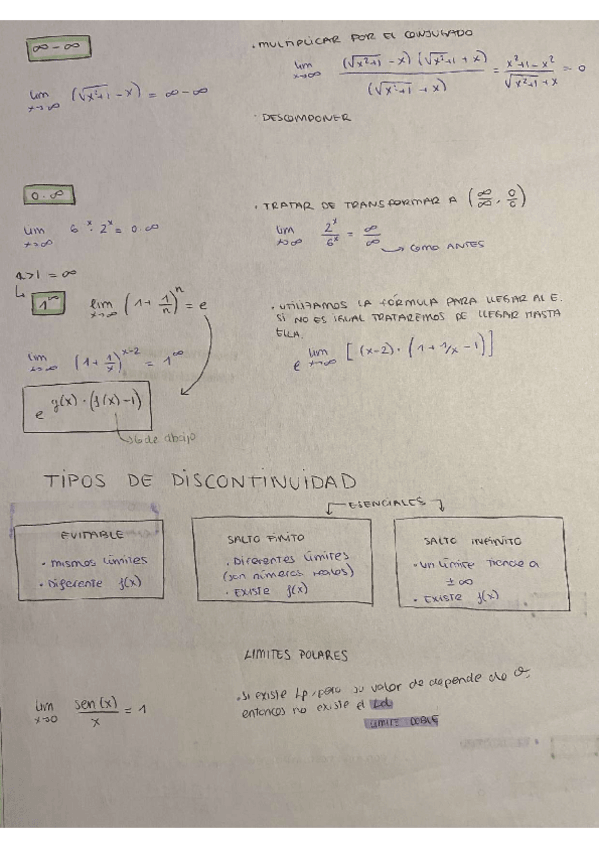 ∞ - ∞
· MULTIPLICAR POR EL CONJUGADO
lim x→∞ (√x²+1 - x) = ∞ - ∞
lim x→∞ (√x²+1 - x) (√x²+1 + x) / (√x²+1 + x) = x²+1-x² / √x²+1 + x = 0
· DESCOMPONER
0 · ∞
· TRATAR DE TRANSFORMAR A (∞/∞, 0/0)
lim x→∞ 6^x · 2^x = 0·∞
lim x→∞ 2^x / 6^x = ∞/∞
→ COMO ANTES
1>1 = ∞
1^∞
lim x→∞ (1 + 1/n)^n = e
· UTILIZAMOS LA FÓRMULA PARA LLEGAR AL E.
SI NO ES IGUAL TRATAREMOS DE LLEGAR HASTA
ELLA.
lim x→∞ (1 + 1/x)^x-2 = 1^∞
e^lim x→∞ [(x-2) · (1 + 1/x - 1)]
e^g(x) · (f(x) - 1)
de abajo
TIPOS DE DISCONTINUIDAD
ESENCIALES
EVITABLE
· mismos límites
· Diferente f(x)
SALTO FINITO
· Diferentes límites
(son números reales)
· EXISTE f(x)
SALTO INFINITO
· Un límite tiende a
± ∞
· EXISTE f(x)
LIMITES POLARES
lim x→0 sen(x) / x = 1
· Si existe Lp, pero su valor de depende de θ,
entonces no existe el Ld
LIMITE DOBLE